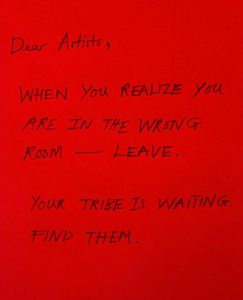 Dear Artists,
WHEN YOU REALIZE YOU
ARE IN THE WRONG
ROOM — LEAVE.
YOUR TRIBE IS WAITING
FIND THEM.